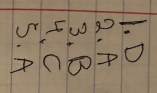 1. D
2. A
3. B
4. C
5. A